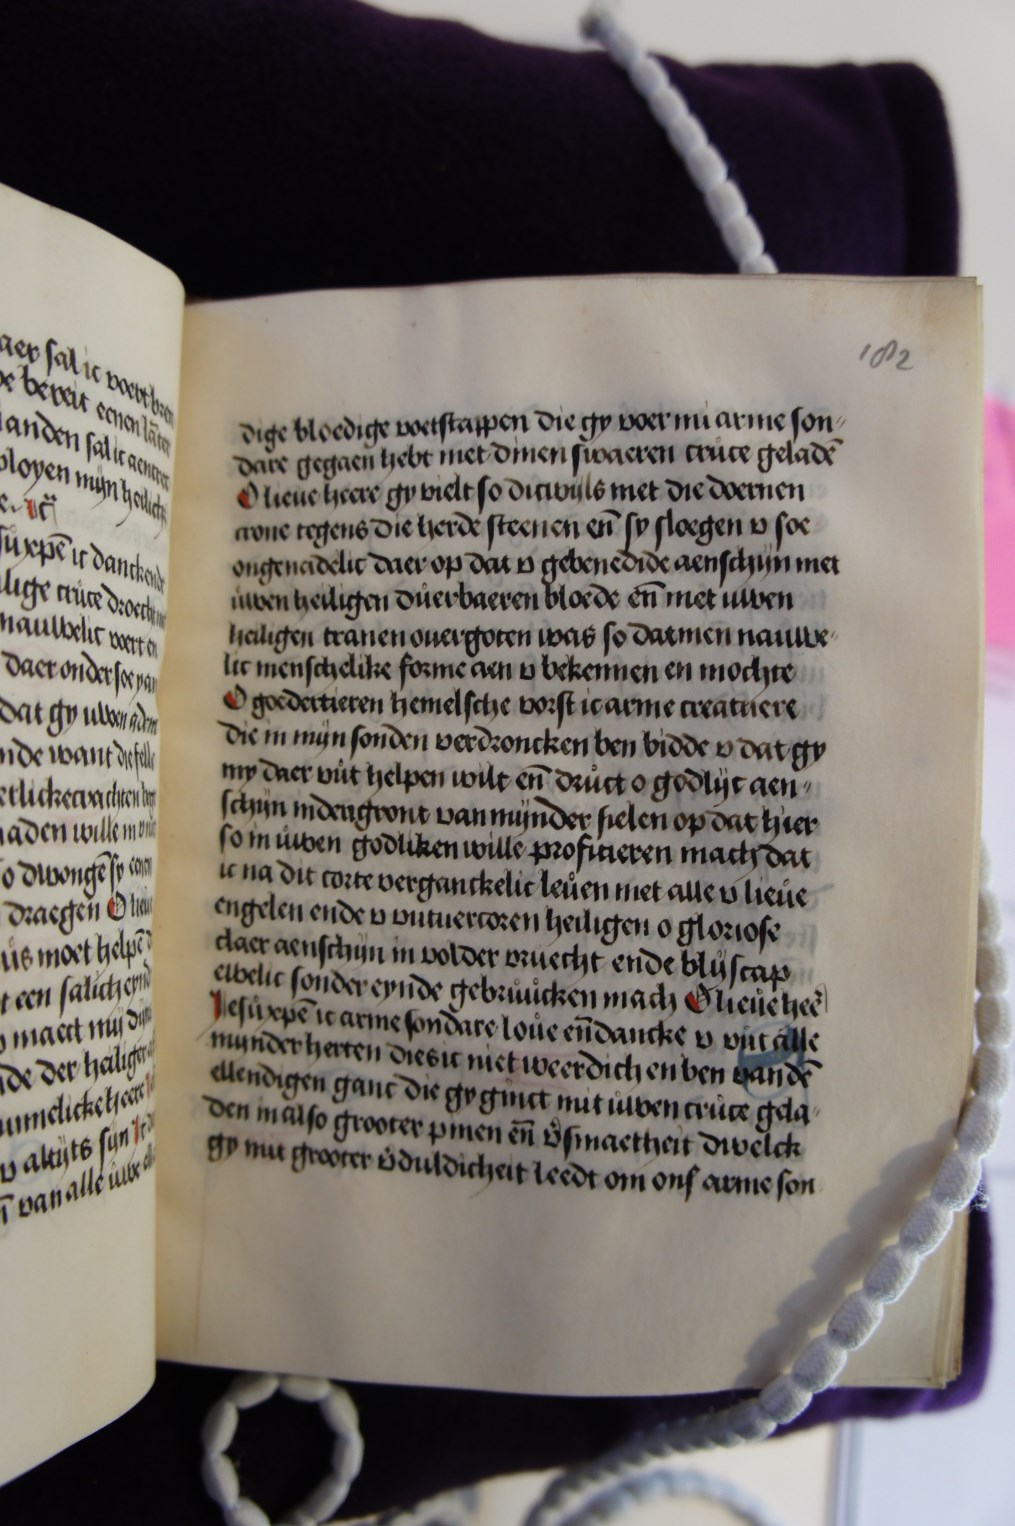 182
aer sal ic voert bren
e bereit eenen
anden sal ic aen
ployen mijn heilich
aer onder soe van
dat gy uwen adem
nde want die felle
aden wille
o dwongē sy eenen
draegen O lieue
us moet helpē
t een salich eynde
maect mij
de der heiliger
ummelicke heere
v altijts sijn
van alle uwe
dige bloedige voetstappen die gy voer mi arme son-
dare gegaen hebt met dinen swaeren cruce geladē
O lieue heere gy vielt so dicwijls met die doernen
crone tegens die herde steenen eñ sy sloegen v soe
ongenadelic daer op dat v gebenedide aenschijn met
uwen heiligen duerbaeren bloede eñ met uwen
heiligen tranen ouergoten was so datmen nauwe-
lic menschelike forme aen v bekennen en mochte
O goedertieren hemelsche vorst ic arme creatuere
die in mijn sonden verdroncken ben bidde v dat gy
my daer uut helpen wilt eñ druct o godlijc aen-
schijn inden gront van mijnder sielen op dat hier
so in uwen godliken wille profitieren mach dat
ic na dit corte verganckelic leuen met alle v lieue
engelen ende v vutuercoren heiligen o gloriose
claer aenschijn in volder vruecht ende blijscap
ewelic sonder eynde gebruucken mach O lieue heē
Iesu xpē ic arme sondare loue eñ dancke v vut alle
mijnder herten dies ic niet weerdich en ben van dē
ellendigen ganc die gy ginct mit uwen cruce gela-
den in also grooter pinen eñ v̄smaetheit dwelck
gy mit grooter v̄duldicheit leedt om ons arme son